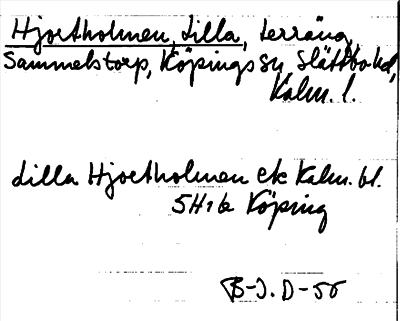 Hjortholmen, Lilla, terräng,
Sammelstorp, Köpings sn, Slättbo hd,
Kalm. l.
Lilla Hjortholmen ek Kalm. bl.
5H1b Köping
B-J. D-55